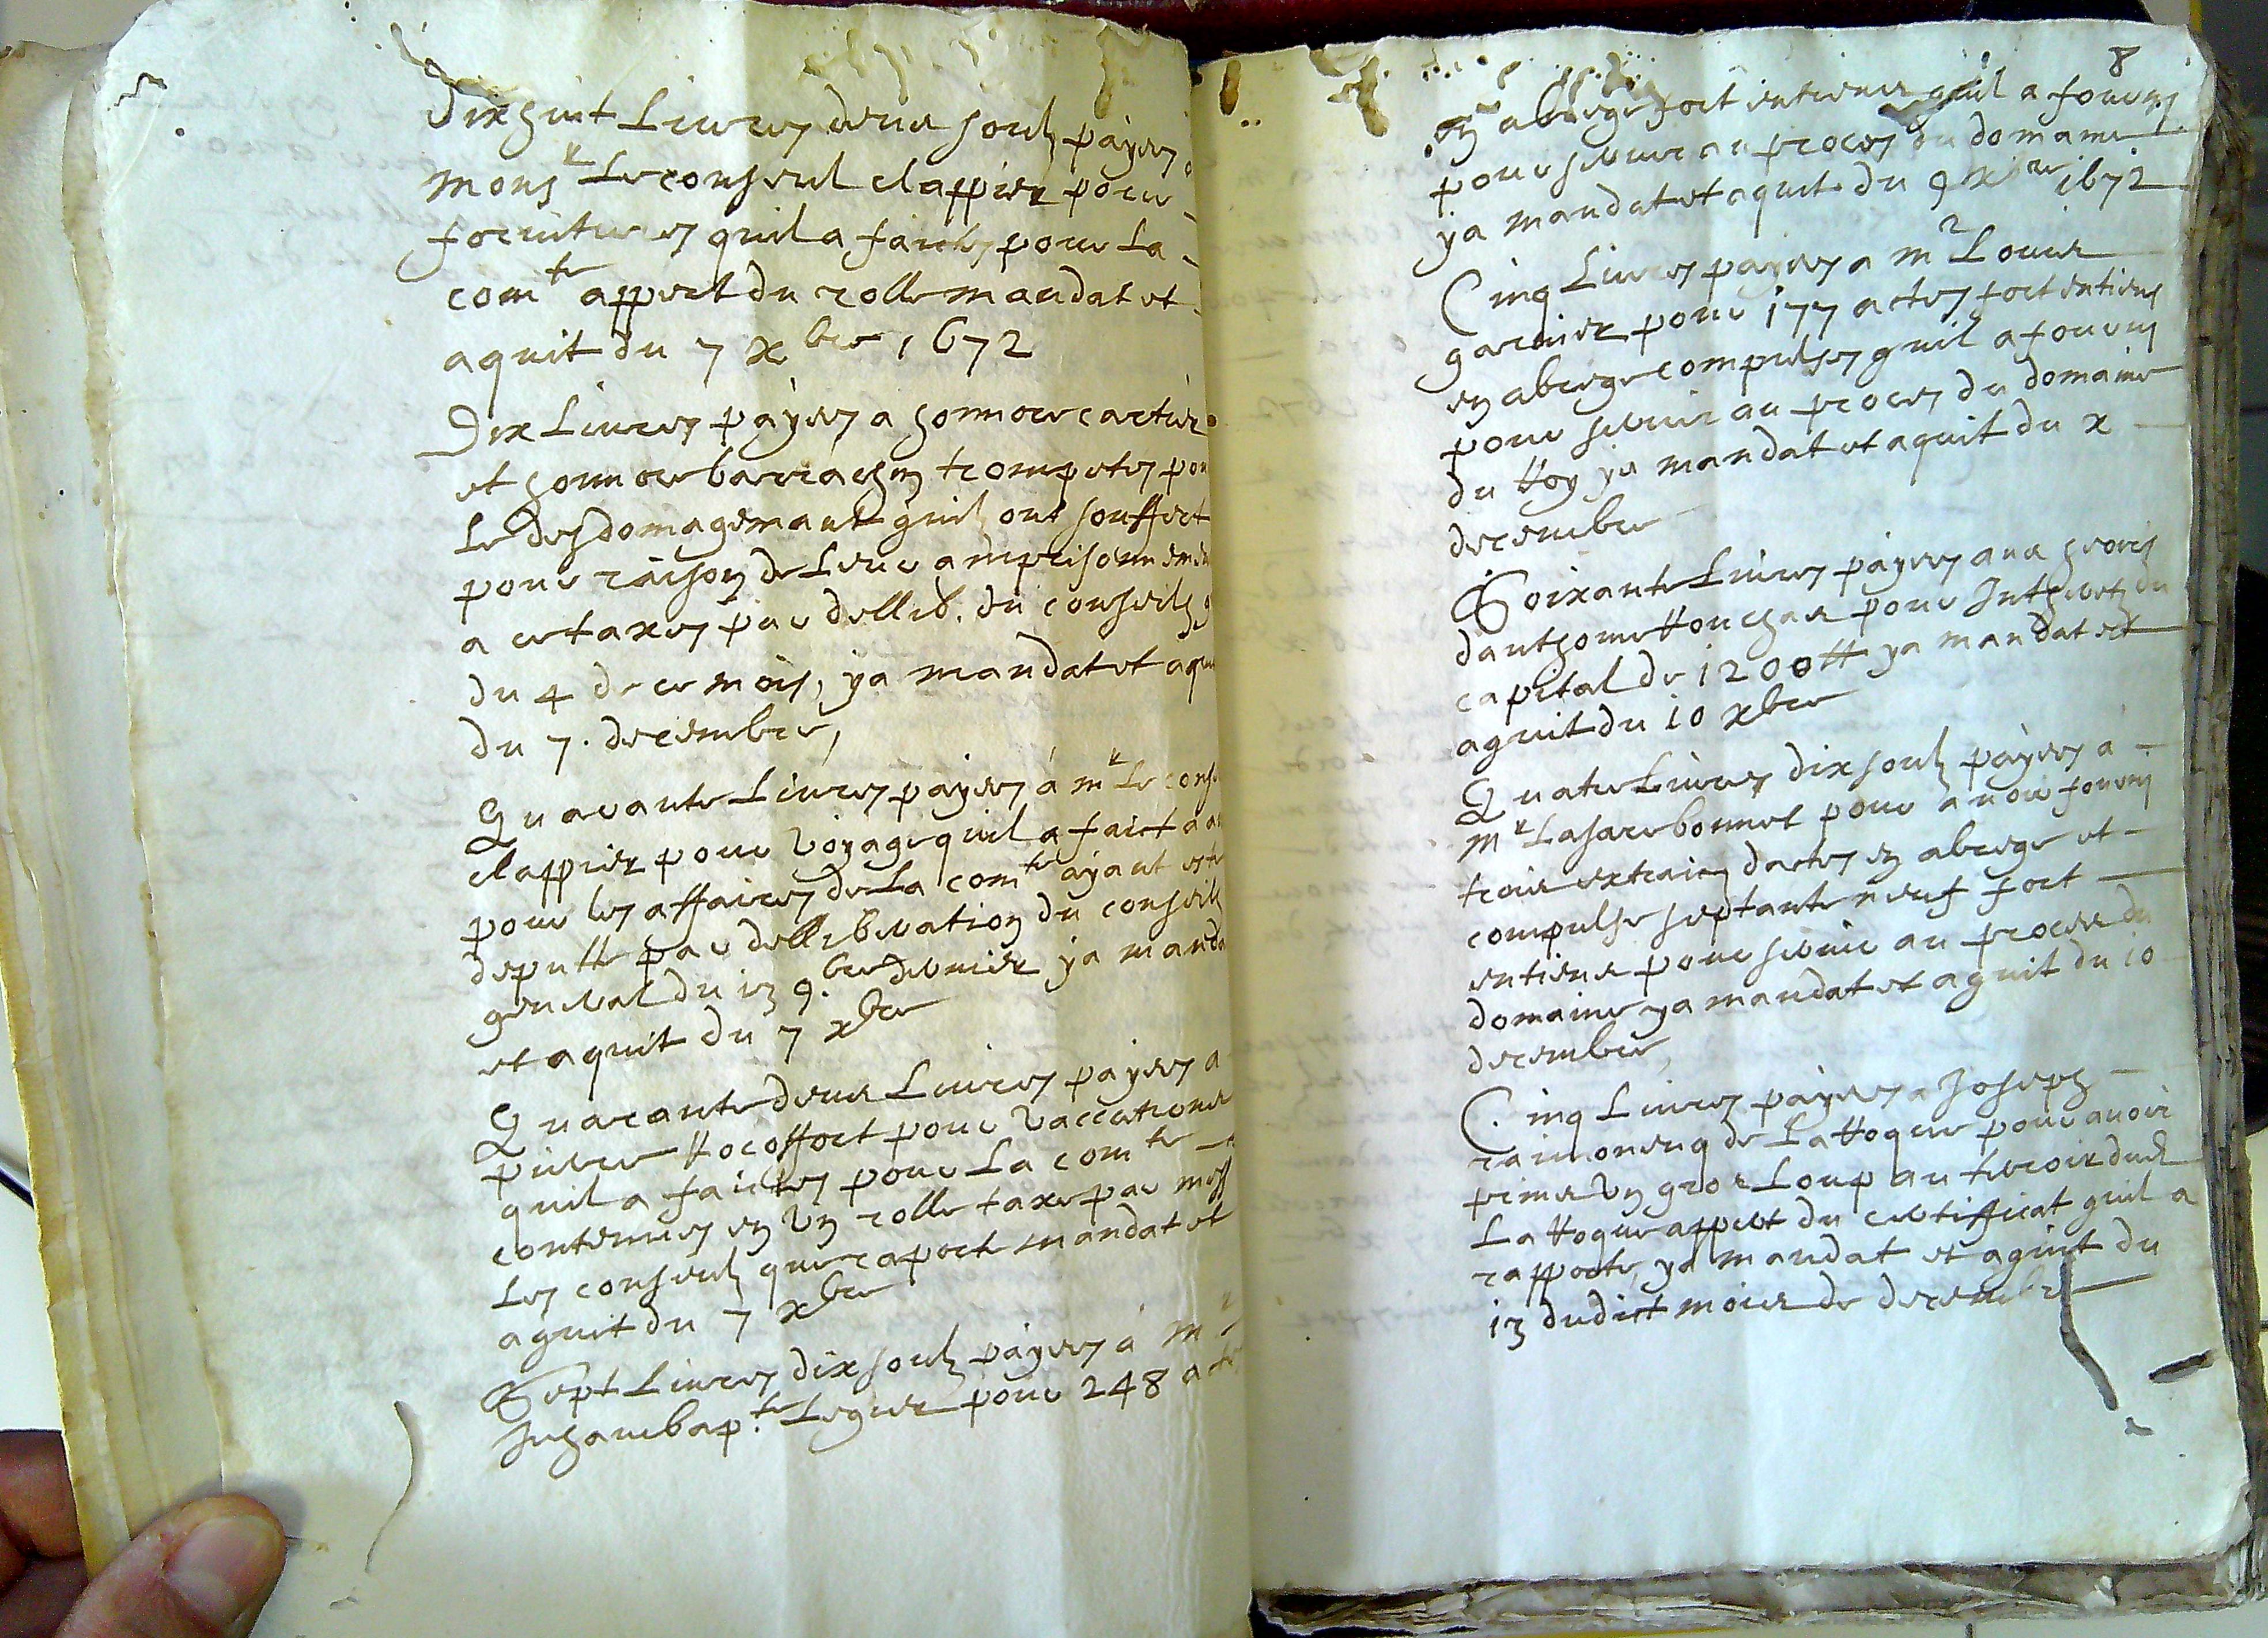 Dixhuit Livres deux soulz payes a
mons.r Le conseul clappier pour
fornitures quil a faictes pour La
com.te appert du rolle mandat et
aquit du 7 xbre 1672
Dix Livres payes a honnore cartier
et honnore barrachin trompetes pour
Le desdomagemant quilz ont souffert
pour raison de Leur amprisonnement
a ce taxes par dellib. du conseilh
du 4 de ce mois, ya mandat et aquit
du 7. decembre,
Quarante Livres payes á m.r Le conseul
clappier pour voyage quil a faict a
pour les affaires de La com.te ayant este
deputté par delliberation du conseilh
general du 13 9.bre dernier ya mandat
et aquit du 7 xbre
Quarante deux Livres payes a
pierre Rocoffort pour vaccations
quil a faictes pour La com.te
contenues en un rolle taxe par mess
Les conseulz que raporte mandat et
aquit du 7 xbre
Sept Livres dix soulz payes á m.e
Jehan bap.te Legier pour 248 actes
8
en abrege fort entiens quil a fourny
pour servir au proces du domaine
ya mandat et aquit du 9 xbre 1672
Cinq Livres payes a m.e Louis
garnier pour 177 actes fort entiens
en abrege compulses quil a fourni
pour servir au proces du domaine
du Roy ya mandat et aquit du x
decembre
Soixante Livres payes aux hoirs
danthome Rouchas pour Intheretz du
capital de 1200 tt ya mandat et
aquit du 10 xbre
Quatre Livres dix soulz payes á
m.e Lasare bonnet pour avoir fourni
trois extraictz dactes en abrege et
compulse septante neuf fort
entiens pour servir au proces du
domaine ya mandat et aquit du 10
decembre,
Cinq Livres payes a Joseph
raimonenq de La Roque pour avoir
prins un gros Loup au terroir dud.
La Roque appert du certifficat quil a
rapporte, ya mandat et aquit du
13 dudict mois de decembre